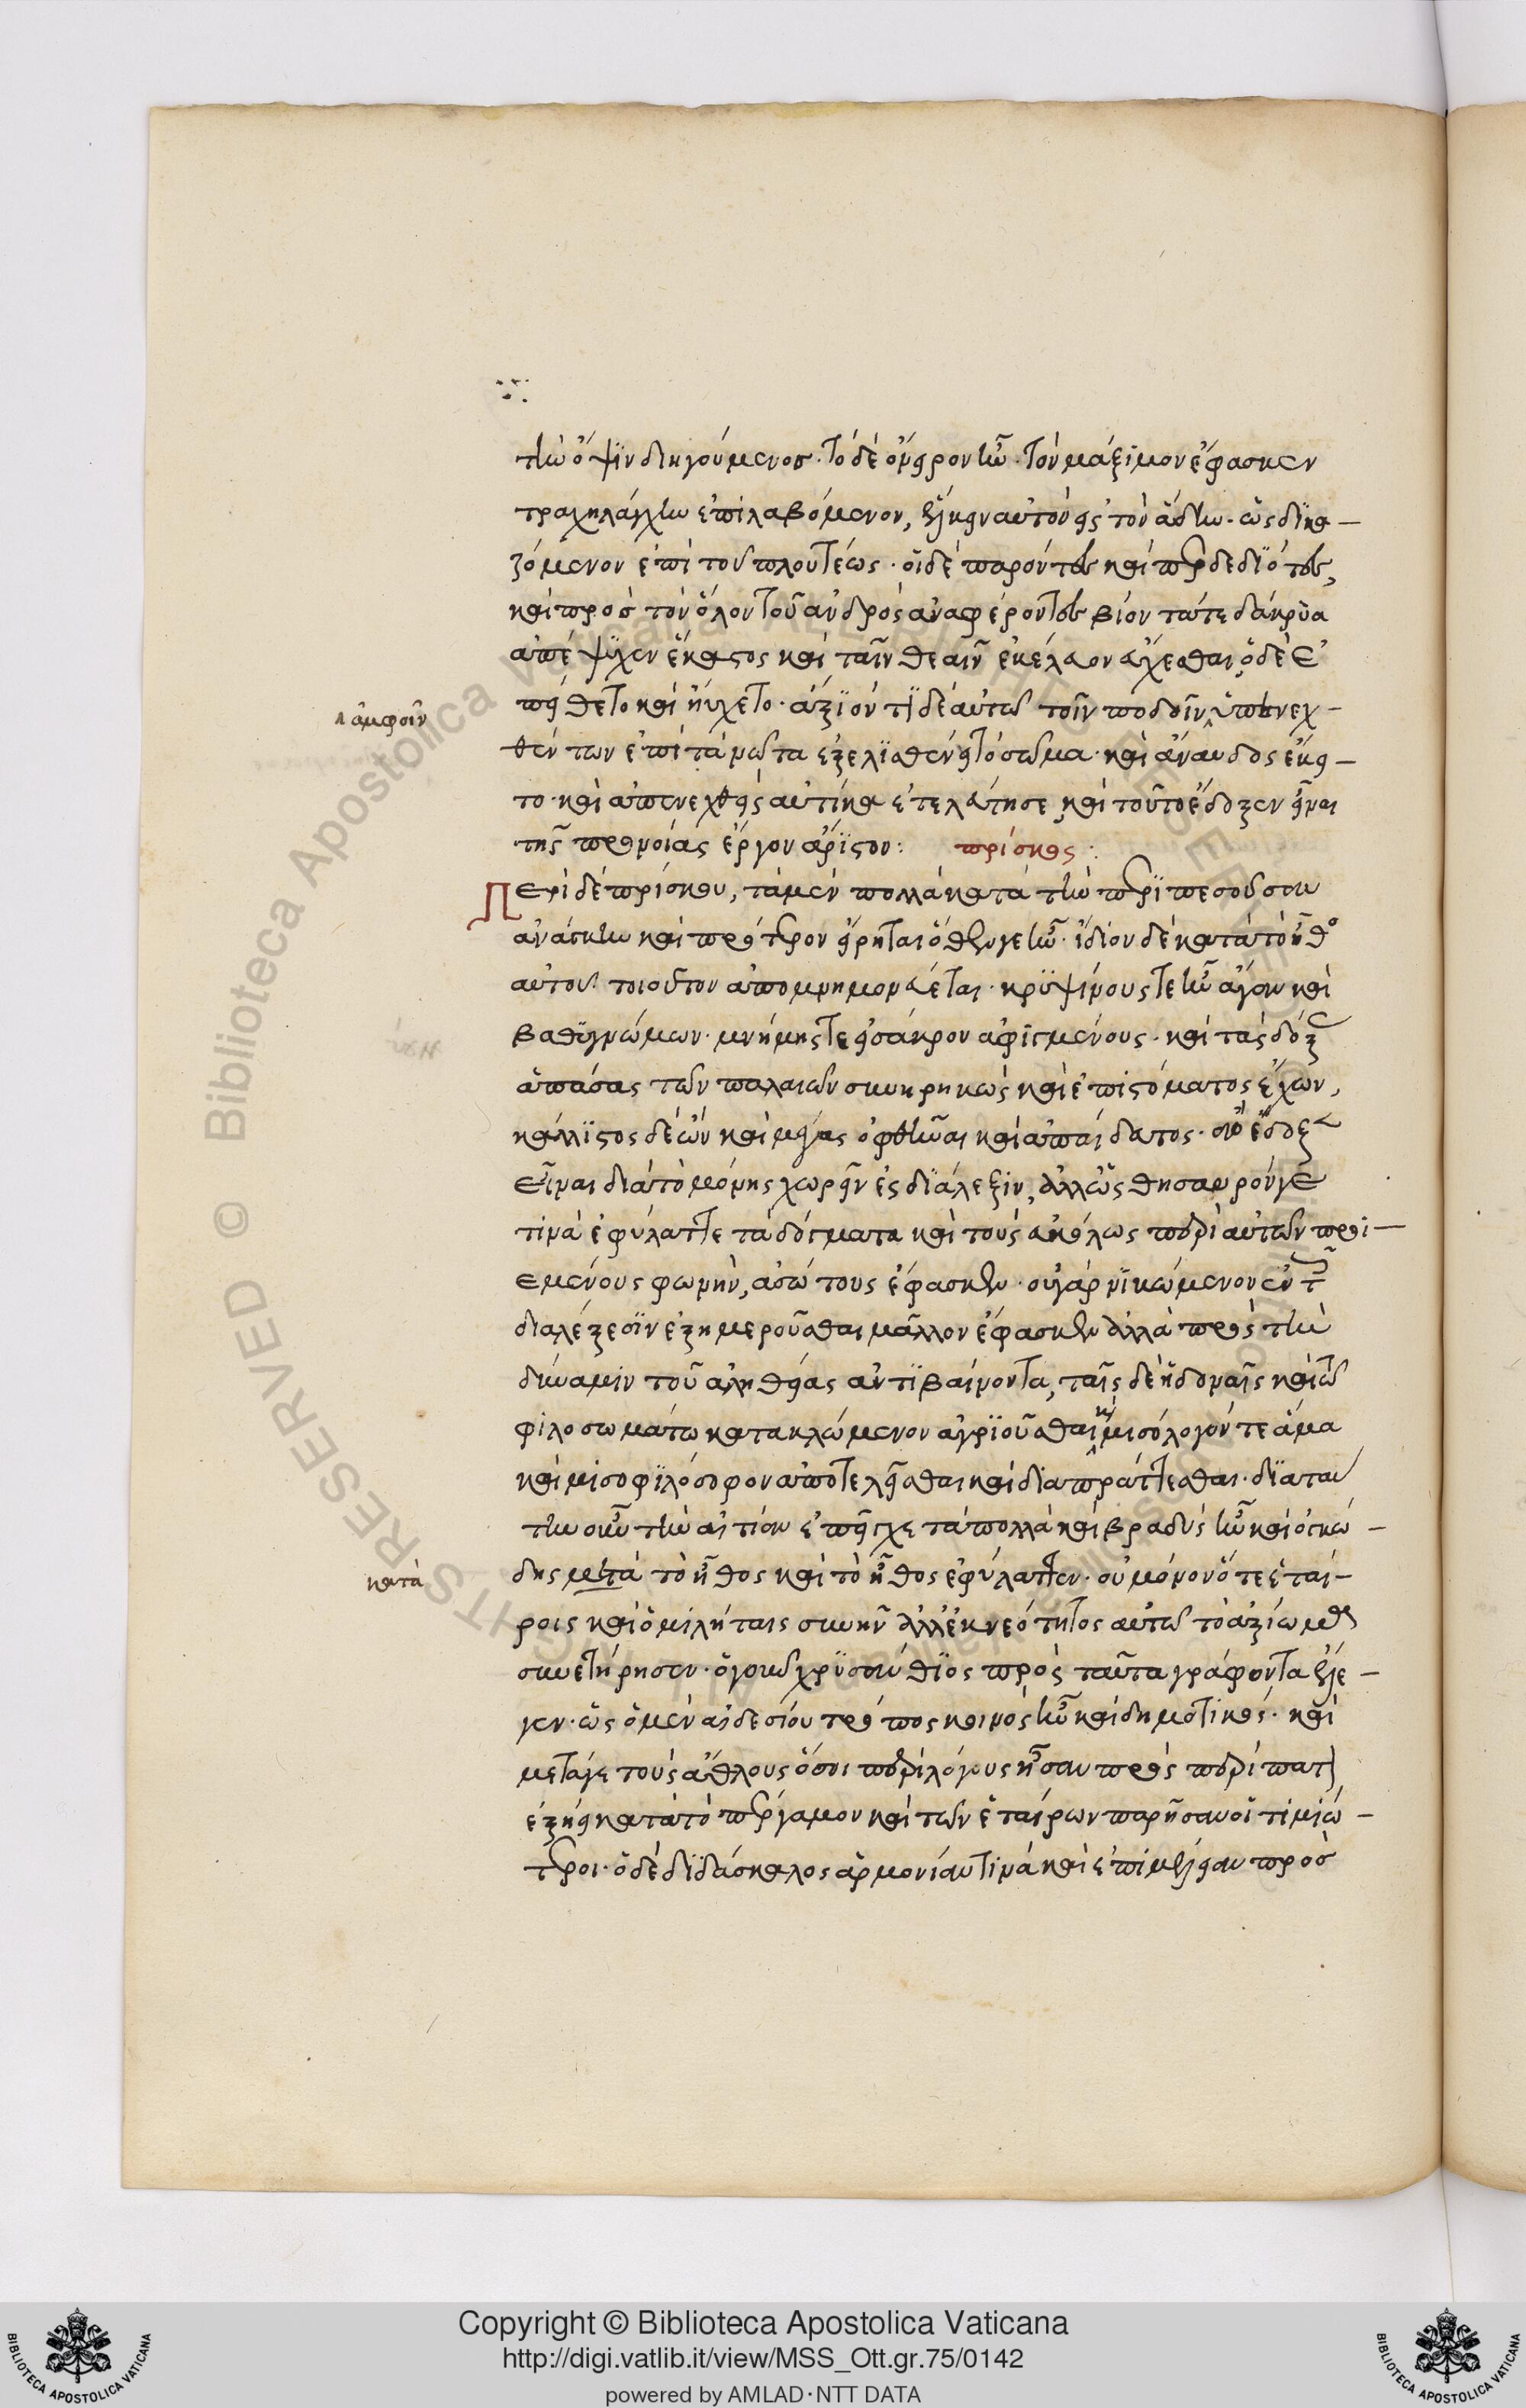 τὴν ὄψϊν διηγούμενος. τὸ δὲ ὄνειρον ἦν. τὸν μάξιμον ἔφασκεν
τραχηλάγχην ἐπιλαβόμενον, ἕλκειν αὐτὸν εἰς τὸν ἅδην. ὡς δϊκα–
ζόμενον ἐπὶ τοῦ πλουτέως. οἱ δὲ παρόντες καὶ περ δεδϊότες,
καὶ πρὸς τὸν ὅλον τοῦ ἀνδρὸς ἀναφέροντες βίον τά τε δάκρϋα
ἀπέψϋχεν ἕκαστος καὶ ταῖν θεαῖν ἐκέλευον εὔχεσθαι, ὁ δὲ ἐ
πείθετο καὶ ηὔχετο. ἀξϊόντϊ δὲ αὐτῶ τοῖν ποδοῖν ὑπενεχ–
⁁ ἀμφοῖν
θέντων ἐπὶ τὰ νῶτα ἐξελϊσθένει τὸ σῶμα. καὶ ἄναυδος ἔκει–
το. καὶ ἀπενεχθεὶς αὐτίκα ἐτελεύτησε, καὶ τοῦτο ἔδοξεν εἶναι
τῆς προνοίας ἔργον ἄρϊστον: πρίσκος:
Περὶ δὲ πρίσκου, τὰ μὲν πολλὰ κατὰ τὴν περϊπεσοῦσαν
ἀνάγκην καὶ πρότερον εἴρηται ὅθεν γε ἦν. ἰδίον δὲ κατὰ τὸ ἦθο
αὐτοῦ τοιοῦτον ἀπομνημονεύεται. κρϋψίνους τε ἦν ἄγαν καὶ
βαθϋγνώμων. μνήμης τε εἰς ἄκρον ἀφϊγμένους. καὶ τὰς δόξ
ἁπάσας τῶν παλαιῶν συνῃρηκὼς καὶ ἐπὶ στόματος ἔχων,
κάλλϊστος δὲ ὢν καὶ μέγας ὀφθῆναι καὶ ἀπαίδευτος. ἂν ἔδοξε
εἶναι διὰ τὸ μόνης χωρεῖν ἐς δϊάλεξιν, ἀλλ' ὡς θησαυρόν γε
τινὰ ἐφύλαττε τὰ δόγματα καὶ τοὺς εὐκόλως περὶ αὐτῶν προϊ–
εμένους φωνὴν, ἀσώτους ἔφασκεν. οὐ γὰρ νϊκώμενον ἐν τ
διαλέξεσϊν ἐξημεροῦσθαι μᾶλλον ἔφασκεν ἀλλὰ πρὸς τὴν
δύναμιν τοῦ ἀληθείας ἀντϊβαίνοντα, ταῖς δὲ ἡδοναῖς καὶ τῶ
φιλοσωμάτω κατακλώμενον ἀγρϊοῦσθαι, καὶ μισόλογόν τε ἅμα
καὶ μισοφϊλόσοφον ἀποτελεῖσθαι καὶ δϊαπράττεσθαι. δϊὰ ταύ
την οὖν τὴν αἰτίαν ἐπεῖχε τὰ πολλὰ καὶ βραδὺς ἦν καὶ ὀγκώ–
δης μετὰ τὸ ἦθος καὶ τὸ ἦθος ἐφύλαττεν. οὐ μόνον ὅτε ἑταί–
κατὰ
ροις καὶ ὁμιλήταις συνῆν ἀλλ' ἐκ νεότητος αὐτῶ τὸ ἀξίωμα
συνετήρησεν. ὁ γοῦν χρϋσάνθϊος πρὸς ταῦτα γράφοντα ἔλε–
γεν. ὡς ὁ μὲν αἰδεσίου τρόπος κοινὸς ἦν καὶ δημοτικός. καὶ
μετά γε τοὺς ἄθλους ὅσοι περὶ λόγους ἦσαν πρὸς περίπατ
ἐξῄει κατὰ τὸ πέργαμον καὶ τῶν ἑταίρων παρῆσαν οἱ τιμιώ–
τεροι. ὁ δὲ δϊδάσκαλος ἁρμονίαν τινὰ καὶ ἐπιμέλειαν πρὸς
Copyright © Biblioteca Apostolica Vaticana
http://digi.vatlib.it/view/MSS_Ott.gr.75/0142
powered by AMLAD·NTT DATA